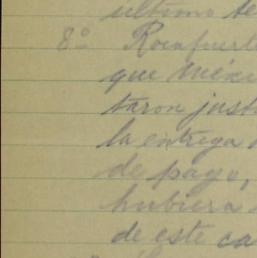 ultimo te
8º Rocafuerte
que Méxi
taron just
la entrega
de pago,
hubiera
de este ca